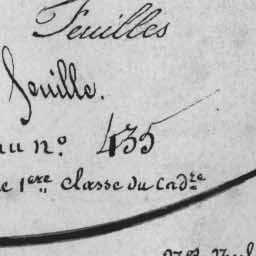 Feuilles
feuille.
au n° 435
e 1ere classe du Cadre